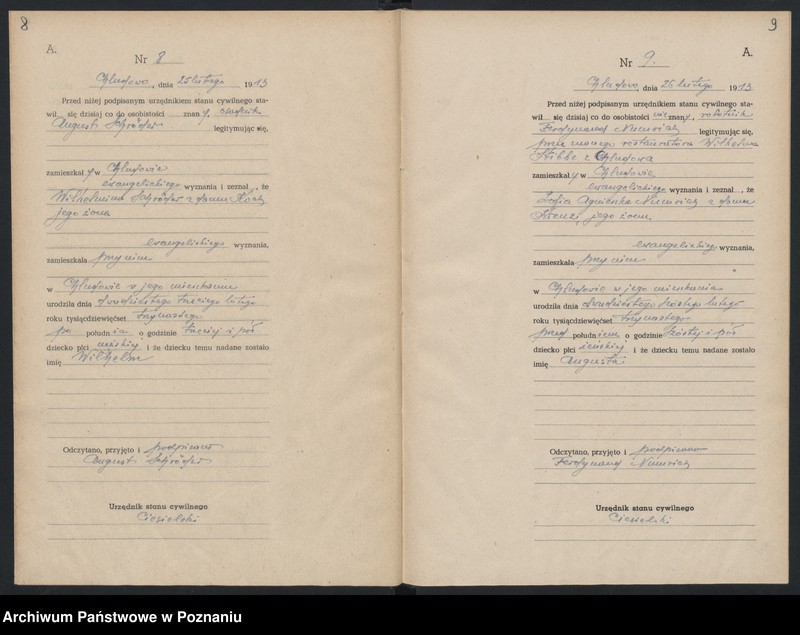 8
A.
Nr 8
Chludowo, dnia 25 lutego 1913
Przed niżej podpisanym urzędnikiem stanu cywilnego sta-
wił się dzisiaj co do osobistości znany,
August Schröder legitymując się,
zamieszkały w Chludowie
ewangelickiego wyznania i zeznał, że
Wilhelmina Schröder z domu
jego żona
ewangelickiego wyznania,
zamieszkała przy nim
w Chludowie w jego mieszkaniu
urodziła dnia dwudziestego trzeciego lutego
roku tysiącdziewięćset trzynastego
po południu o godzinie trzeciej i pół
dziecko płci męskiej i że dziecku temu nadane zostało
imię Wilhelm
Odczytano, przyjęto i podpisano
August Schröder
Urzędnik stanu cywilnego
Ciesielski
9
A.
Nr 9.
Chludowo, dnia 26 lutego 1913
Przed niżej podpisanym urzędnikiem stanu cywilnego sta-
wił się dzisiaj co do osobistości nie znany, robotnik
Ferdynand legitymując się,
przez restauratora Wilhelma
Stibbe z Chludowa
zamieszkały w Chludowie
ewangelickiego wyznania i zeznał, że
Zofia Agnieszka z domu
jego żona
ewangelickiej wyznania,
zamieszkała przy nim
w Chludowie w jego mieszkaniu
urodziła dnia dwudziestego szóstego lutego
roku tysiącdziewięćset trzynastego
przed południem o godzinie szóstej i pół
dziecko płci żeńskiej i że dziecku temu nadane zostało
imię Augusta
Odczytano, przyjęto i podpisano
Ferdynand
Urzędnik stanu cywilnego
Ciesielski
Archiwum Państwowe w Poznaniu